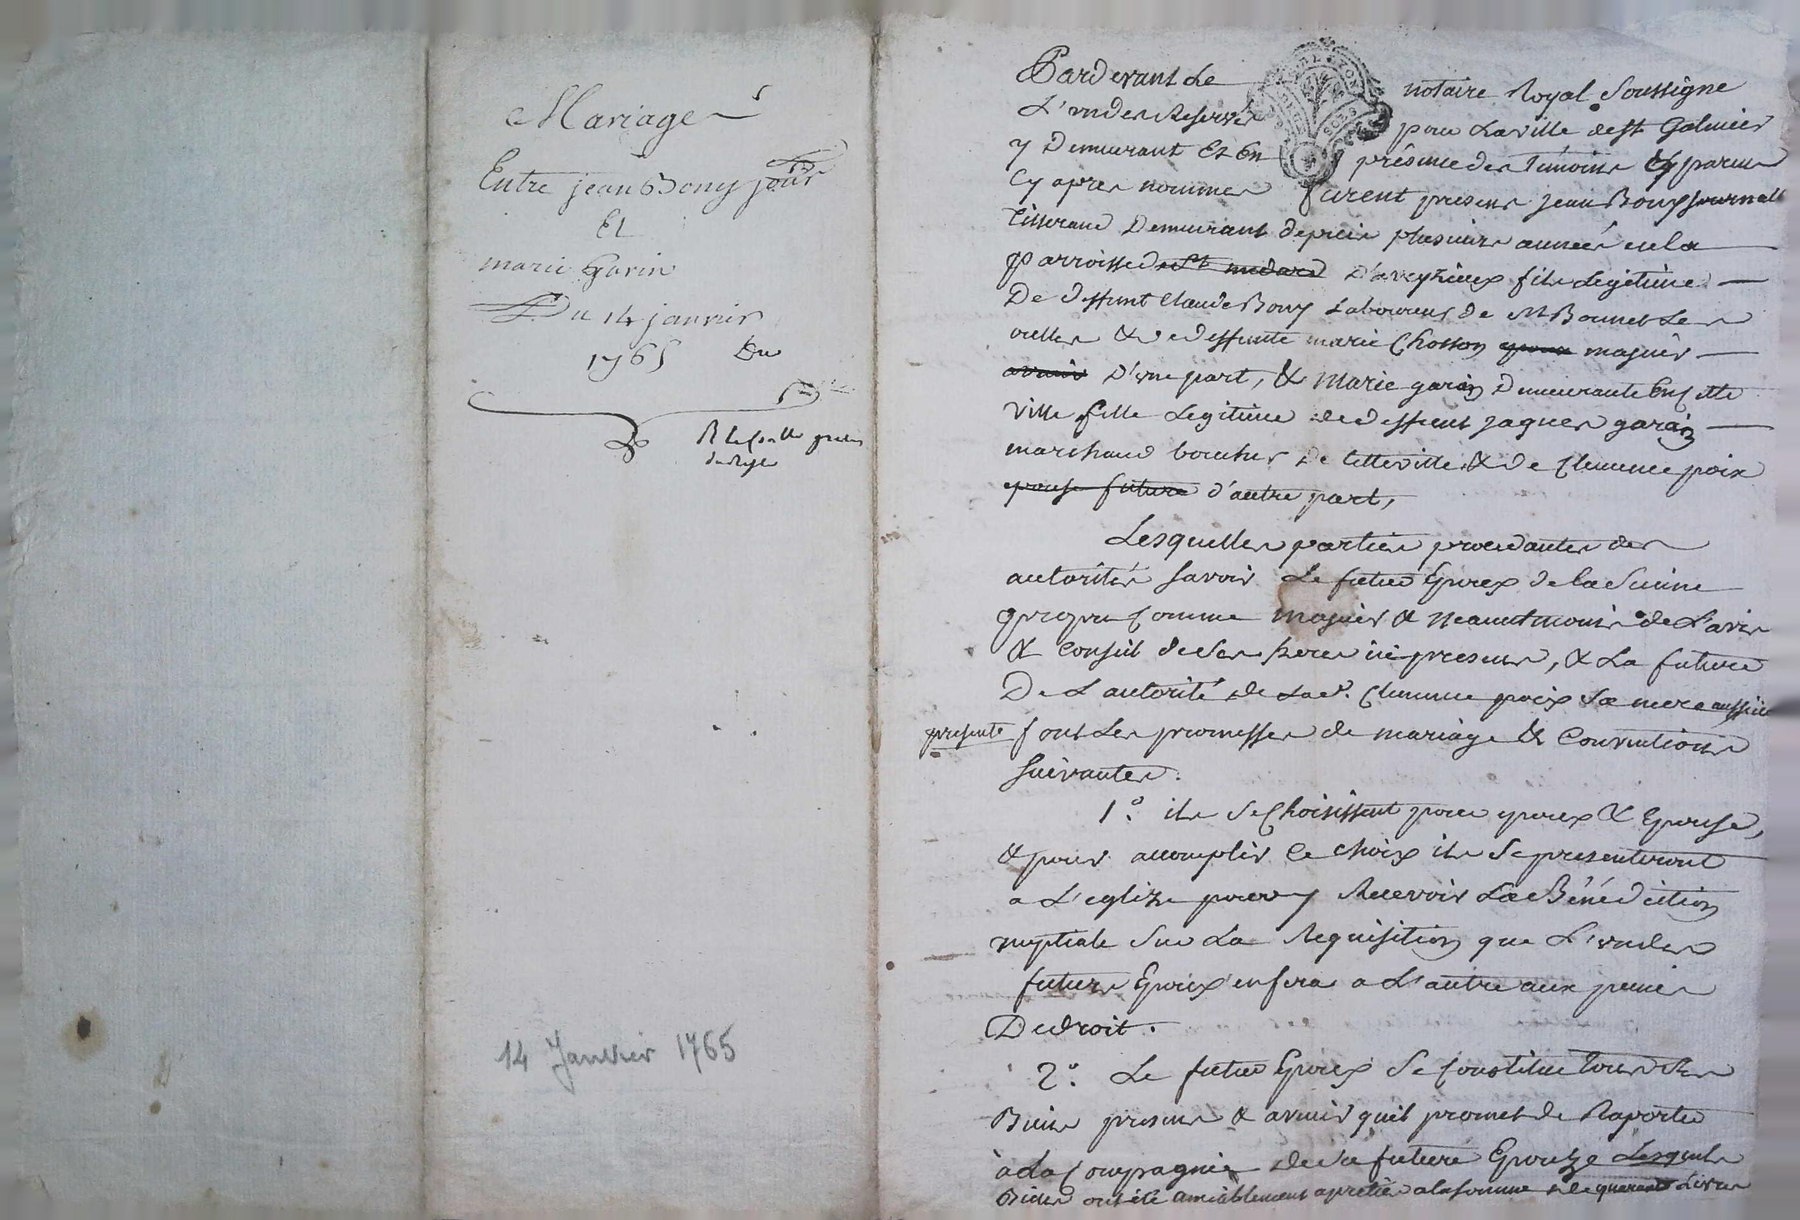 Mariage
Entre jean Bony
Et
marie Garin
Du 14 janvier
1765
14 Janvier 1765
Pardevant Le notaire Royal Soussigne
L'un des Reservés pour La ville de St Galmier
y Demeurant Et En présence des Témoins
Cy apres nommes furent presens jean Bony journall
Tisserand Demeurant depuis plusieurs années en la
parroisse de St medard D'aveyzieux fils Legitime
De deffunt Claude Bony Laboureur de St Bonnet Les
oulles & de deffunte marie Chosson epoux majeur
avenir D'une part, & Marie garin Demeurante En cette
ville fille Legitime de deffunt jaques garin
marchand boucher de cette ville & de Clemence poix
epouse future d'autre part,
Lesquelles parties procedantes des
autorités savoir Le futur Epoux de la Sienne
propre Comme majeur & neantmoins de L'avis
& Conseil de ses freres ici presens, & La future
De L'autorité de Lad. Clemence poix Sa mere aussi ici
presente font Les promesses de mariage & Conventions
suivantes.
1º. ils Se Choisissent pour epoux & Epouse,
& pour accomplir ce choix ils Se presenteront
a L'eglize pour y Recevoir La Bénédiction
nuptiale Sur La Requisition que L'un des
futurs Epoux en fera a L'autre aux peines
De droit.
2º. Le futur Epoux Se Constitue Tous Ses
Biens presens & avenir quil promet de Raporter
à La Compagnie de Sa future Epouze Lesquels
Biens ont été amiablement apretiés a la somme de quarante Livres